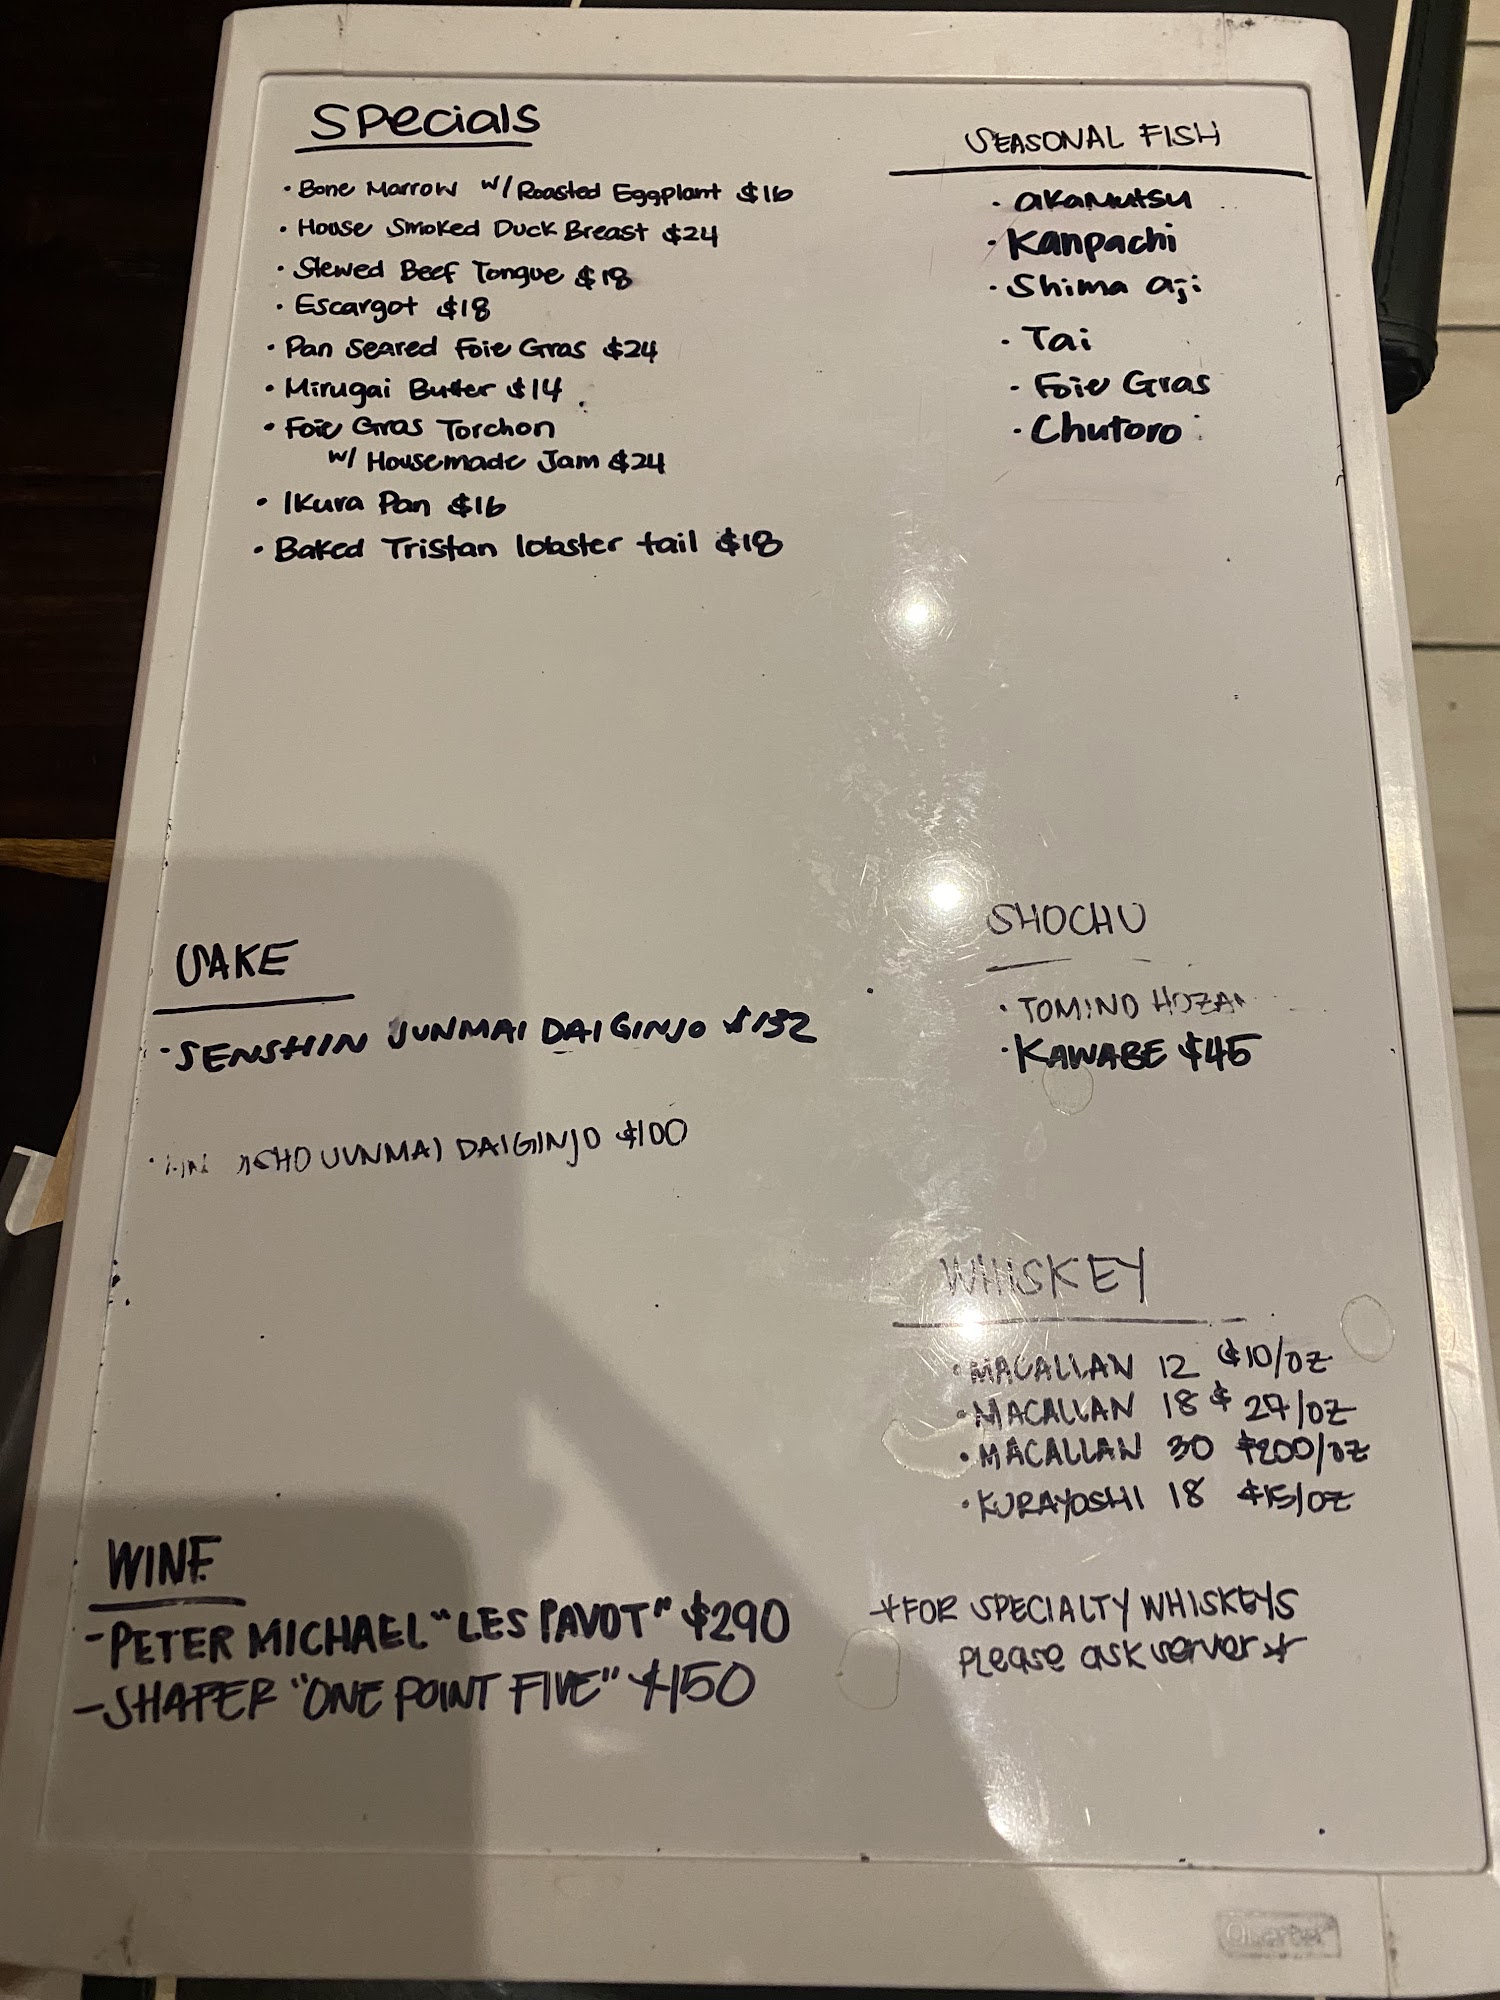 Specials
• Bone Marrow w/ Roasted Eggplant $16
• House Smoked Duck Breast $24
• Stewed Beef Tongue $18
• Escargot $18
• Pan Seared Foie Gras $24
• Mirugai Butter $14
• Foie Gras Torchon
w/ Housemade Jam $24
• Ikura Pan $16
• Baked Tristan lobster tail $18
SEASONAL FISH
• akamutsu
• Kanpachi
• Shima aji
• Tai
• Foie Gras
• Chutoro
SAKE
• SENSHIN JUNMAI DAIGINJO $132
• JUNMAI DAIGINJO $100
SHOCHU
• TOMINO HOZAN
• KAWABE $45
WHISKEY
• MACALLAN 12 $10/OZ
• MACALLAN 18 $27/OZ
• MACALLAN 30 $200/OZ
• KURAYOSHI 18 $15/OZ
*FOR SPECIALTY WHISKEYS
please ask server*
WINE
- PETER MICHAEL "LES PAVOT" $290
- SHAFER "ONE POINT FIVE" $150
Quartet